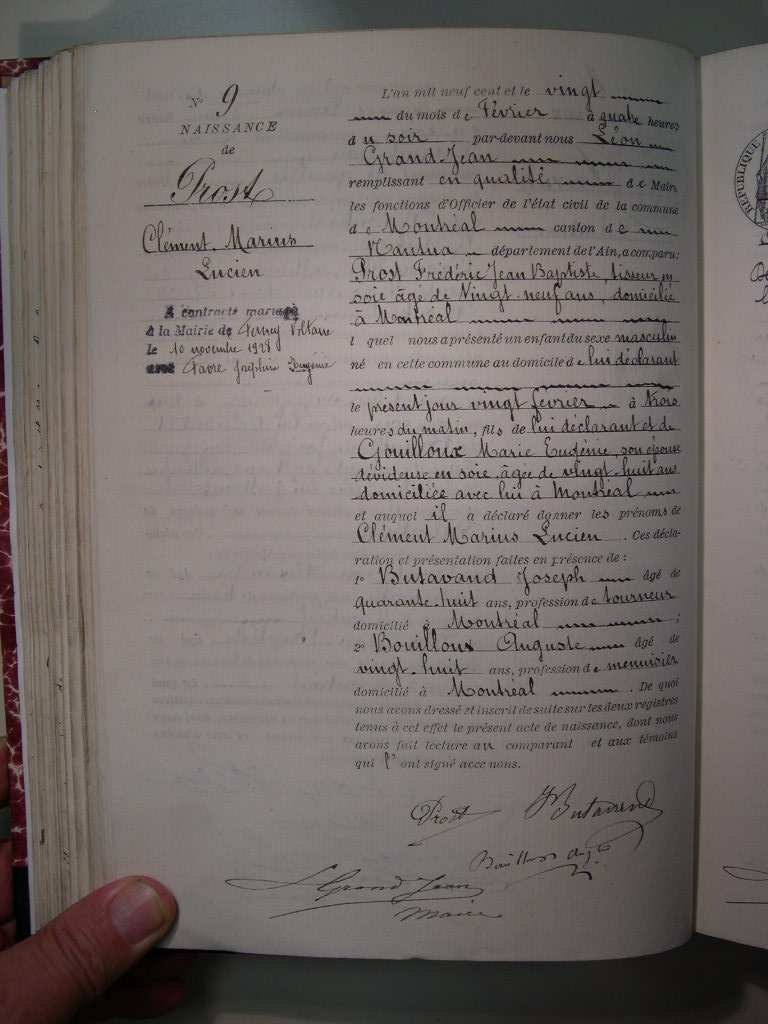 N° 9
NAISSANCE
de
Prost
Clément Marius
Lucien
A contracté mariage
à la Mairie de Ferney Voltaire
le 10 novembre 1928
avec Favre Joséphine Eugénie
L'an mil neuf cent et le vingt
du mois de Février à quatre heures
du soir par-devant nous Léon
Grand-Jean
remplissant en qualité de Maire
les fonctions d'Officier de l'état civil de la commune
de Montréal canton de
Nantua département de l'Ain, a comparu:
Prost Frédéric Jean Baptiste, tisseur en
soie âgé de vingt-neuf ans, domicilié
à Montréal
lquel nous a présenté un enfant du sexe masculin
né en cette commune au domicile de lui déclarant
le présent jour vingt février à trois
heures du matin, fils de lui déclarant et de
Gouilloux Marie Eugénie, son épouse
dévideuse en soie, âgée de vingt-huit ans
domiciliée avec lui à Montréal
et auquel il a déclaré donner les prénoms de
Clément Marius Lucien. Ces décla-
ration et présentation faites en présence de:
1° Butavand Joseph âgé de
quarante-huit ans, profession de tourneur
domicilié à Montréal;
2° Bouilloux Auguste âgé de
vingt-huit ans, profession de menuisier
domicilié à Montréal. De quoi
nous avons dressé et inscrit de suite sur les deux registres
tenus à cet effet le présent acte de naissance, dont nous
avons fait lecture au comparant et aux témoins
qui l'ont signé avec nous.
Prost J Butavand
Bouilloux Aug te
L Grand Jean
Maire
RÉPUBLIQUE